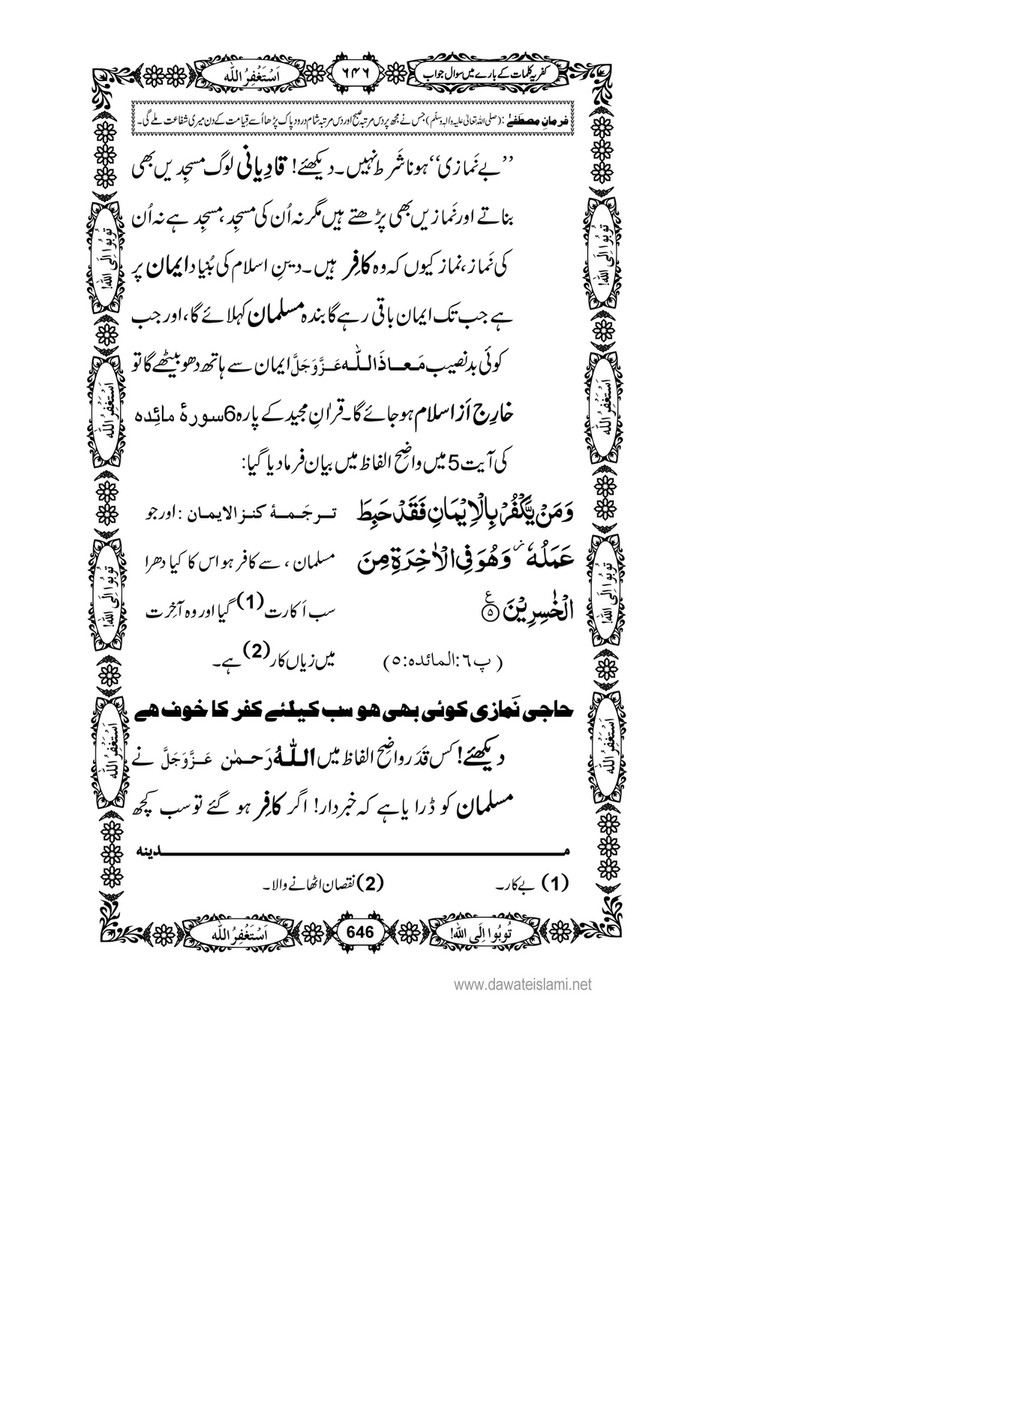 کفریہ کلمات کے بارے میں سوال جواب
٦٤٦
اَسْتَغْفِرُ اللّٰه
فرمانِ مصطفےٰ: (صلی اللہ تعالیٰ علیہ والہ وسلّم) جس نے مجھ پر دس مرتبہ صبح اور دس مرتبہ شام درود پاک پڑھا اُسے قیامت کے دن میری شفاعت ملے گی۔
’’بے نَمازی‘‘ ہونا شَرط نہیں۔ دیکھئے! قادِیانی لوگ مسجِدیں بھی
بناتے اور نَمازیں بھی پڑھتے ہیں مگر نہ اُن کی مسجِد، مسجِد ہے نہ اُن
کی نَماز، نماز کیوں کہ وہ کافِر ہیں۔ دینِ اسلام کی بُنیاد ایمان پر
ہے جب تک ایمان باقی رہے گا بندہ مسلمان کہلائے گا، اور جب
کوئی بدنصیب مَعاذَ اللّٰه عَزَّوَجَلَّ ایمان سے ہاتھ دھو بیٹھے گا تو
خارِج اَز اسلام ہو جائے گا۔ قرانِ مجید کے پارہ 6 سورۂ مائِدہ
کی آیت 5 میں واضِح الفاظ میں بیان فرما دیا گیا:
وَمَنْ یَّكْفُرْ بِالْاِیْمَانِ فَقَدْ حَبِطَ
عَمَلُهٗ ٘ وَهُوَ فِی الْاٰخِرَةِ مِنَ
الْخٰسِرِیْنَ ۠﴿۵﴾
(پ٦: المائدہ: ٥)
ترجَمۂ کنزالایمان: اور جو
مسلمان، سے کافر ہو اس کا کیا دھرا
سب اَکارت (1) گیا اور وہ آخِرت
میں زیاں کار (2) ہے۔
حاجی نَمازی کوئی بھی ہو سب کیلئے کفر کا خوف ہے
دیکھئے! کس قَدَر واضِح الفاظ میں اللّٰهُ رَحمٰن عَزَّوَجَلَّ نے
مسلمان کو ڈرایا ہے کہ خبردار! اگر کافِر ہو گئے تو سب کچھ
مدینہ
(1) بے کار۔ (2) نقصان اٹھانے والا۔
تُوبُوا اِلَی اللّٰه!
646
اَسْتَغْفِرُ اللّٰه
تُوبُوا اِلَی اللّٰه!
اَسْتَغْفِرُ اللّٰه
تُوبُوا اِلَی اللّٰه!
اَسْتَغْفِرُ اللّٰه
تُوبُوا اِلَی اللّٰه!
اَسْتَغْفِرُ اللّٰه
تُوبُوا اِلَی اللّٰه!
اَسْتَغْفِرُ اللّٰه
www.dawateislami.net